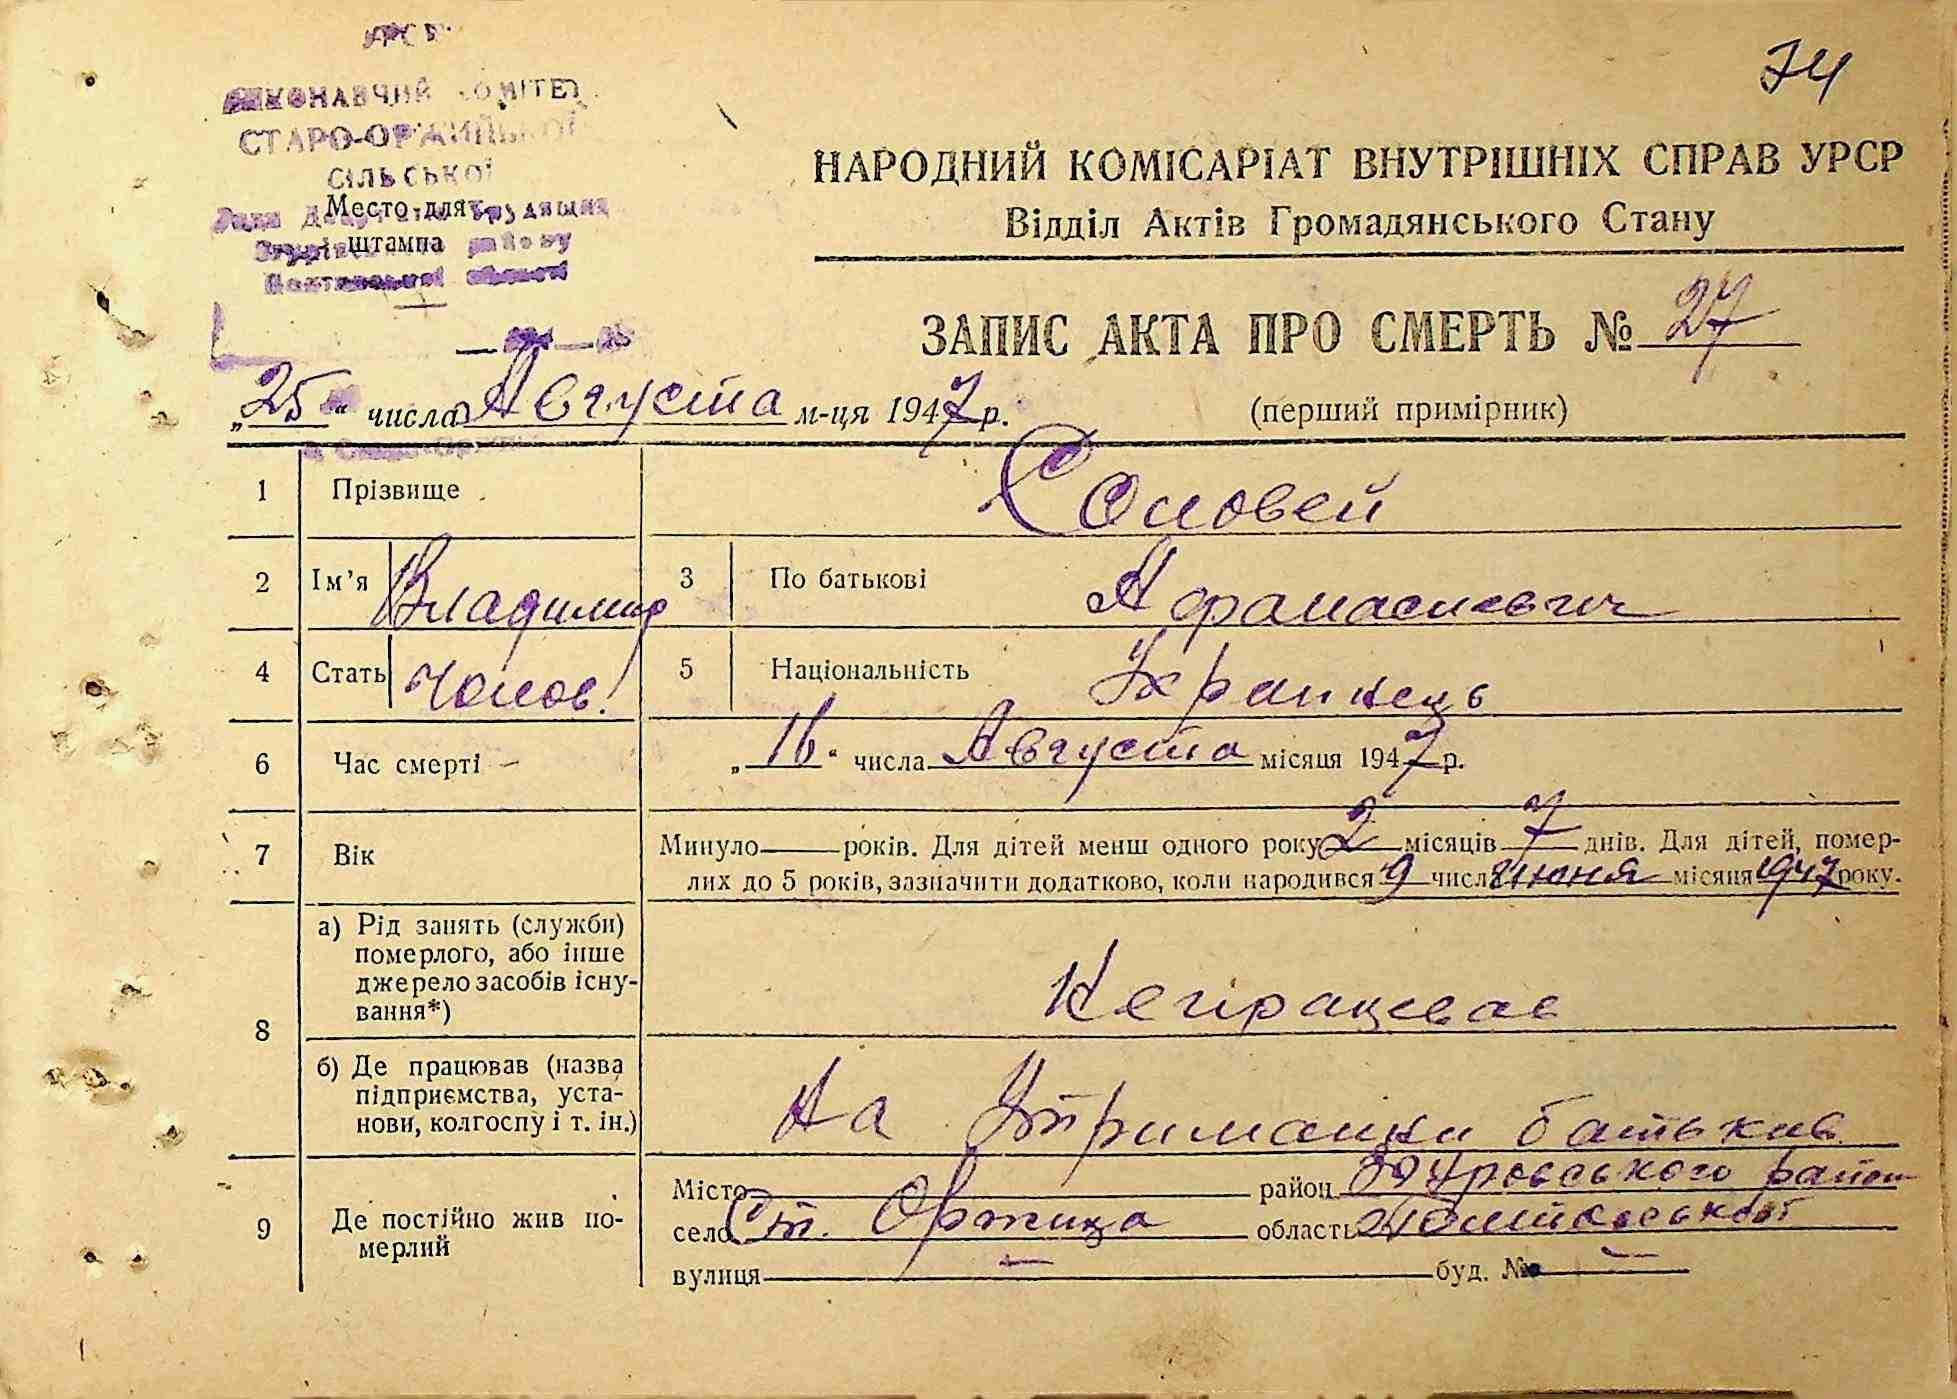 УРСР
74
ВИКОНАВЧИЙ КОМІТЕТ
СТАРО-ОРЖИЦЬКОЇ
СІЛЬСЬКОЇ
Место для
штампа
району
Полтавської області
НАРОДНИЙ КОМІСАРІАТ ВНУТРІШНІХ СПРАВ УРСР
Відділ Актів Громадянського Стану
ЗАПИС АКТА ПРО СМЕРТЬ № 27
„25“ числа Августа м-ця 1947 р.
(перший примірник)
1 Прізвище Соловей
2 Ім’я Владимир 3 По батькові Афанасиевич
4 Стать Чолов. 5 Національність Украинець
6 Час смерті „16“ числа Августа місяця 1947 р.
7 Вік Минуло — років. Для дітей менш одного року 2 місяців 7 днів. Для дітей, помер-
лих до 5 років, зазначити додатково, коли народився 9 числа июня місяця 1947 року.
8 а) Рід занять (служби)
померлого, або інше
джерело засобів існу-
вання*)
Непрацював
б) Де працював (назва
підприємства, уста-
нови, колгоспу і т. ін.)
На Утриманци батькив
9 Де постійно жив по-
мерлий
Місто район Згуровського район
село Ст. Оржица область Полтавськой
вулиця — буд. № —